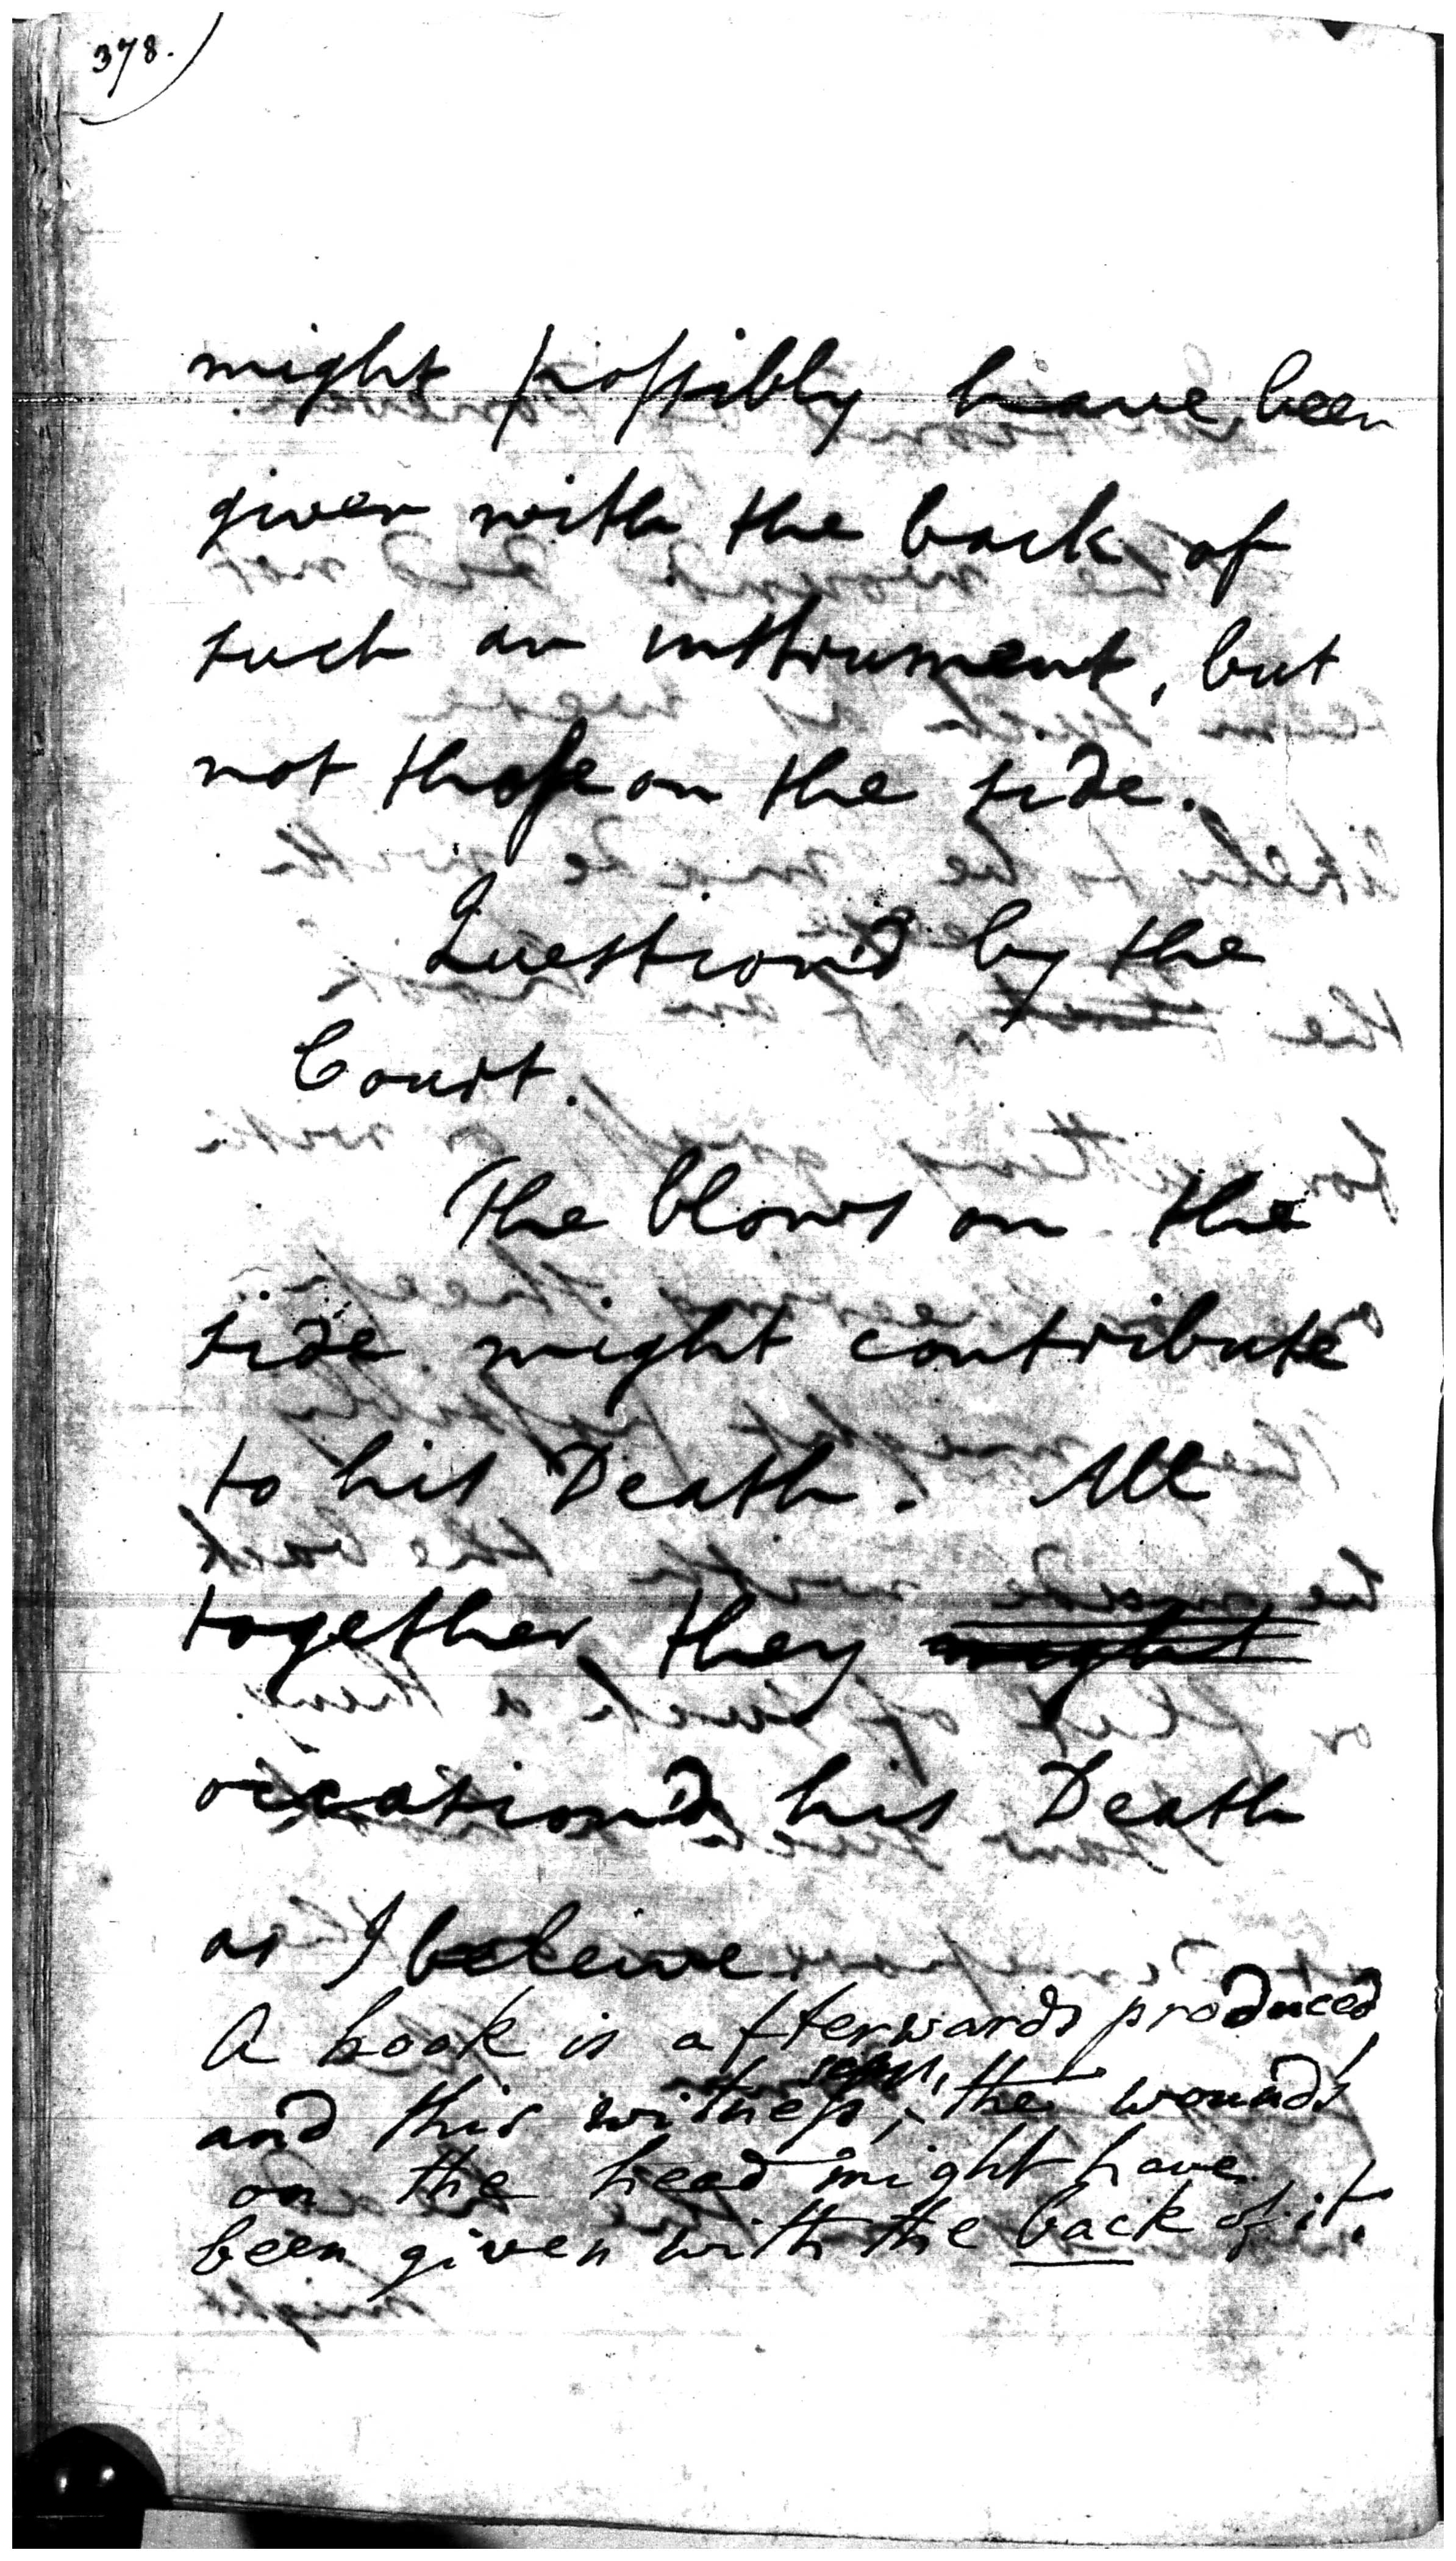 378.
might possibly have been
given with the back of
such an instrument, but
not those on the side.
Question'd by the
Court.
The blows on the
side might contribute
to his Death. All
together they might
occasion'd his Death
as I beleive.
A hook is afterwards produced
and this witness, the wounds
on the head might have
been given with the back of it.